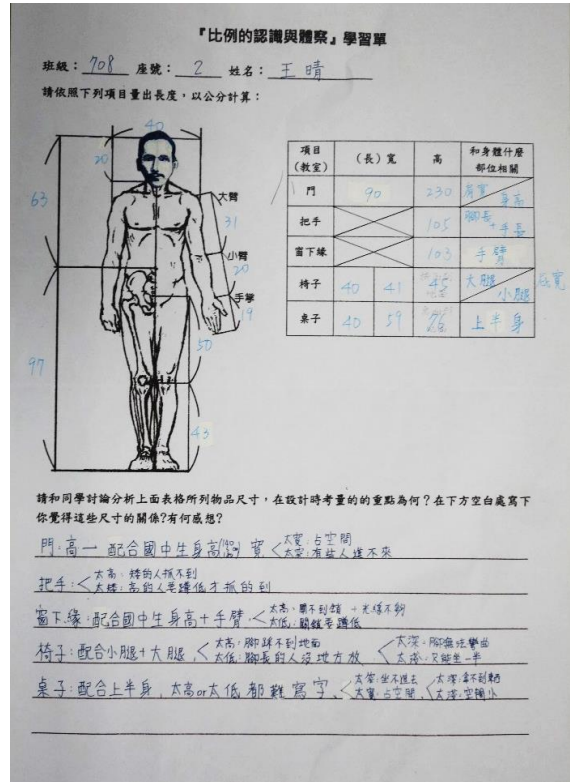 『比例的認識與體察』學習單
班級：708 座號：2 姓名：王晴
請依照下列項目量出長度，以公分計算：
40
20
63
大臂
31
小臂
20
手掌
19
50
97
43
項目（教室） （長）寬 高 和身體什麼部位相關
門 90 230 肩寬 身高
把手 105 腳長+手長
窗下緣 103 手臂
椅子 40 41 45 大腿 小腿
桌子 40 59 76 上半身
請和同學討論分析上面表格所列物品尺寸，在設計時考量的的重點為何？在下方空白處寫下
你覺得這些尺寸的關係?有何感想?
門：高一 配合國中生身高 寬 太寬：占空間
太窄：有些人進不來
把手： 太高：矮的人抓不到
太矮：高的人要蹲低才抓的到
窗下緣：配合國中生身高+手臂 太高：看不到 光線不夠
太低：要蹲低
椅子：配合小腿+大腿， 太高：腳踩不到地面 太深：腳無法彎曲
太低：腳長的人沒地方放 太淺：只能坐一半
桌子：配合上半身，太高or太低都難寫字， 太窄：坐不進去 太深：拿不到
太寬：占空間， 太淺：空間小